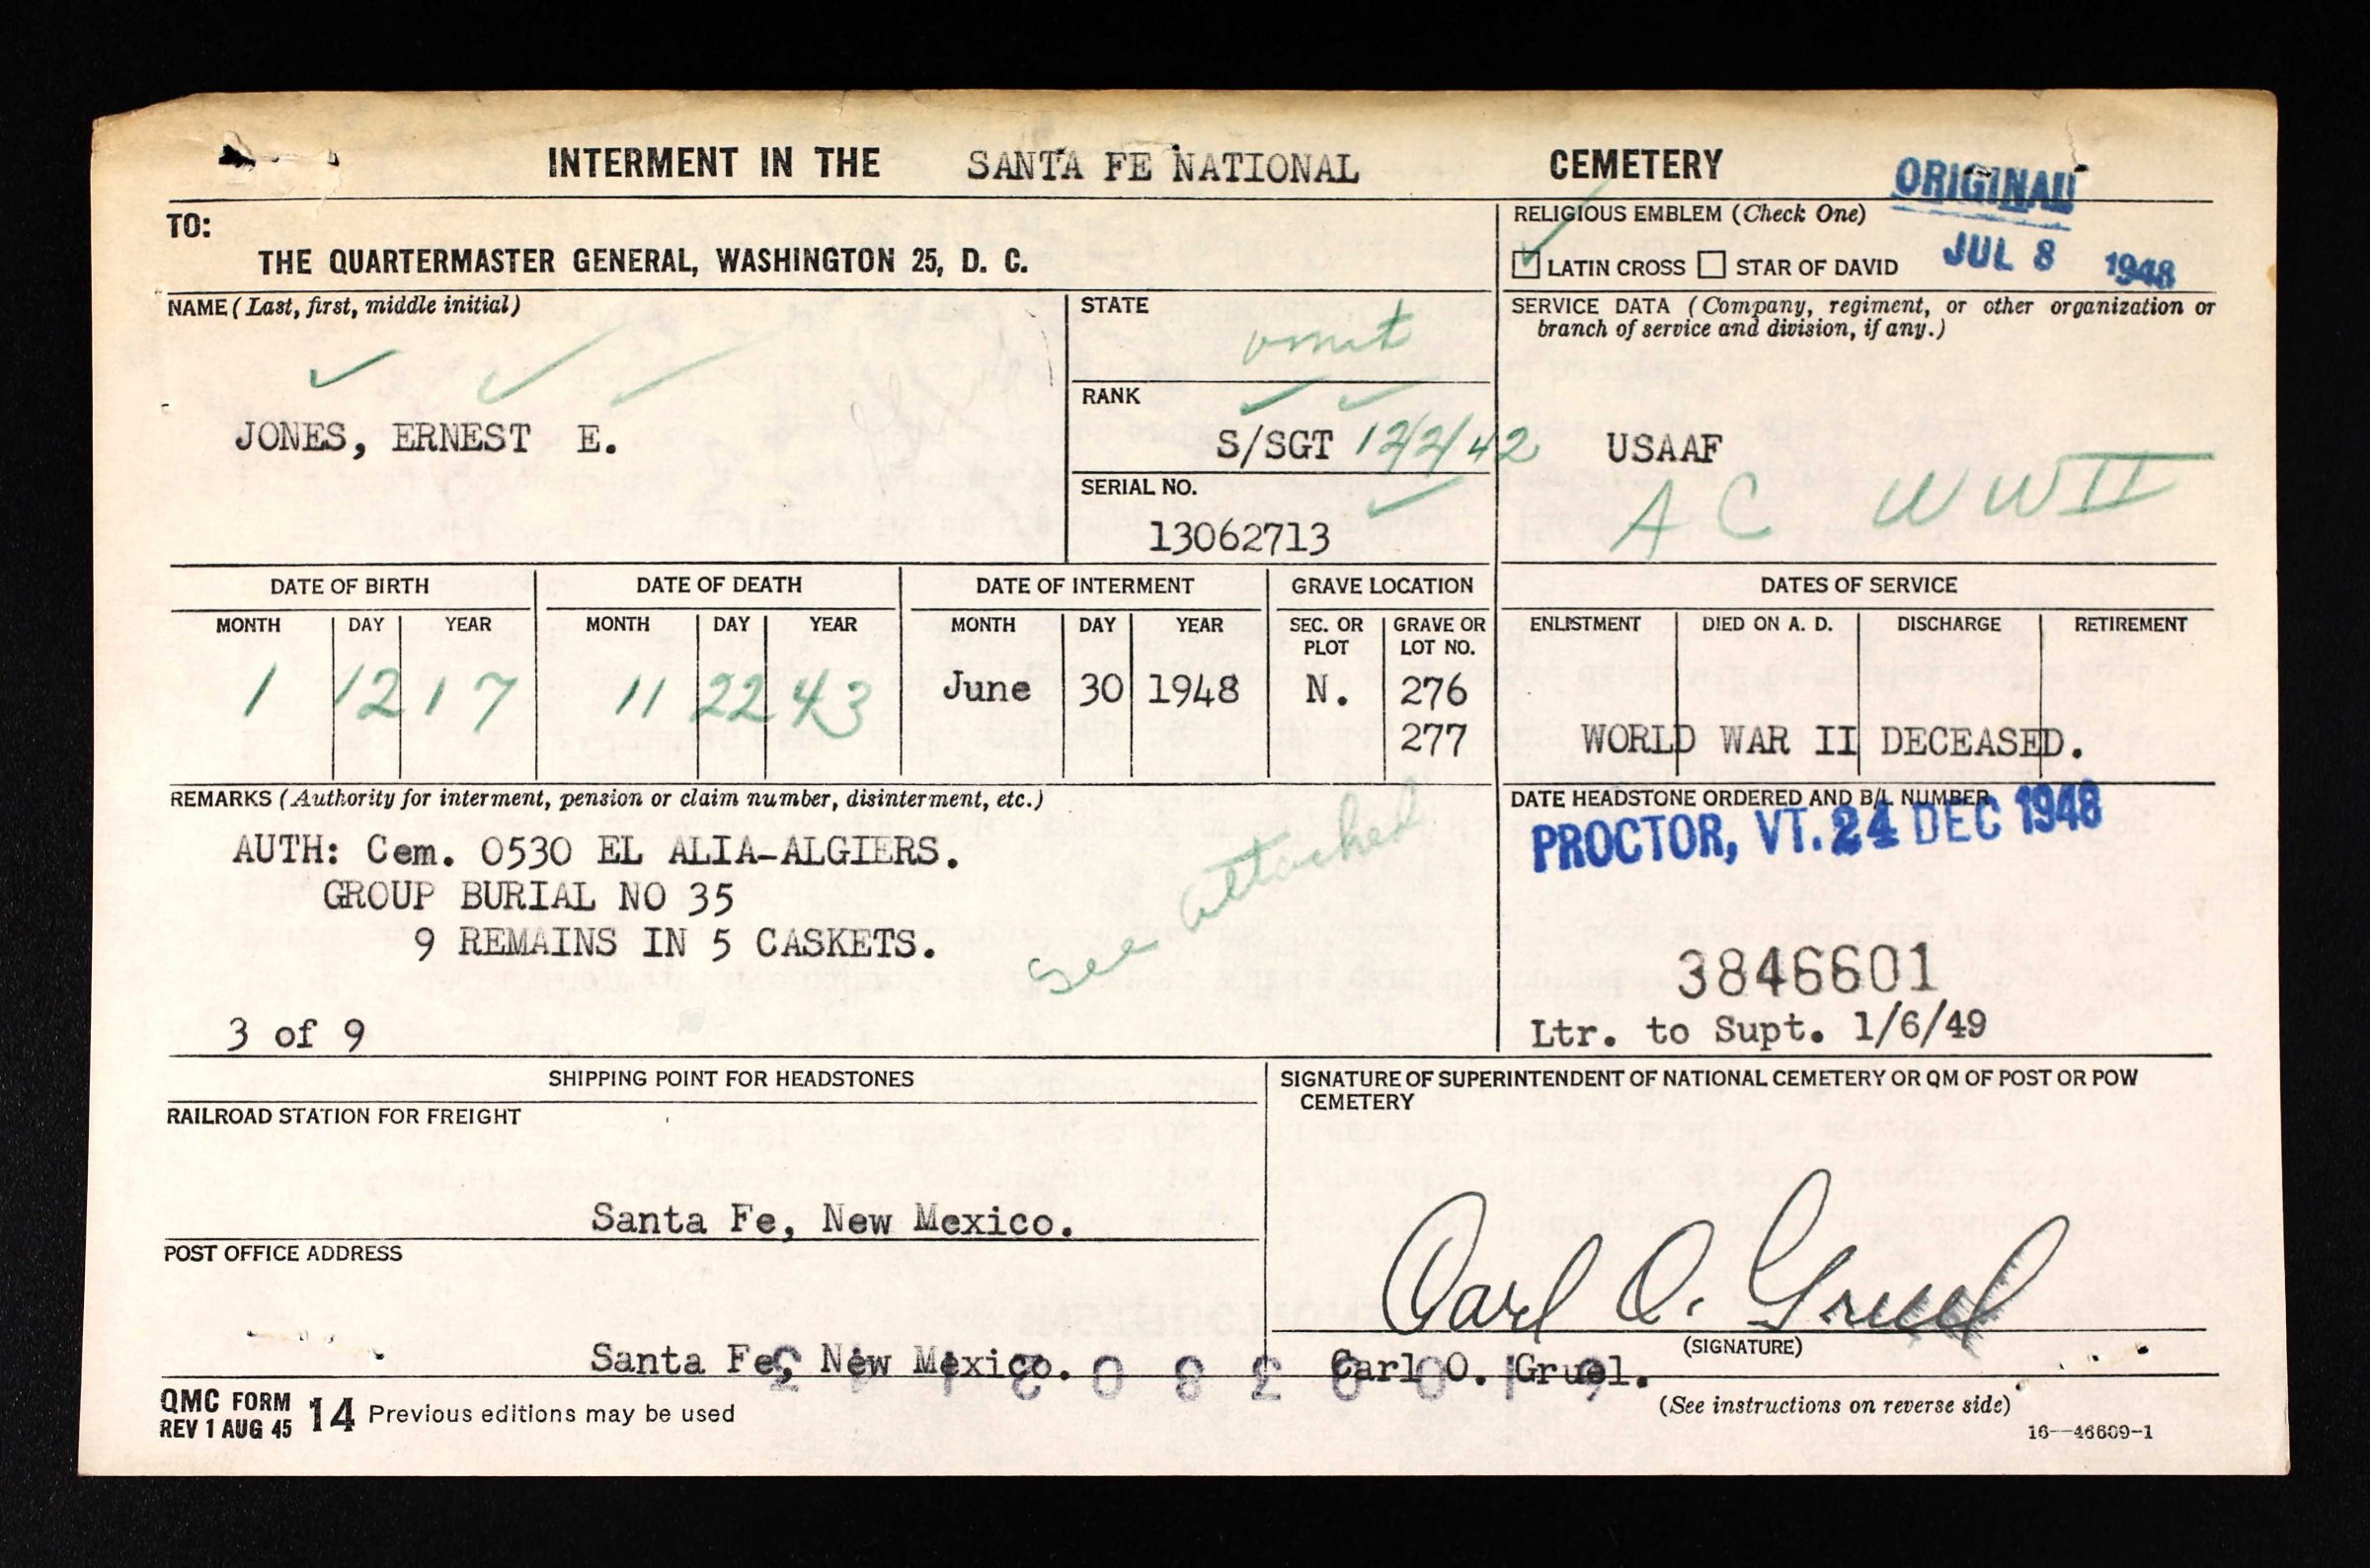 INTERMENT IN THE SANTA FE NATIONAL CEMETERY
ORIGINAL
TO:
THE QUARTERMASTER GENERAL, WASHINGTON 25, D. C.
RELIGIOUS EMBLEM (Check One)
LATIN CROSS STAR OF DAVID
JUL 8 1948
NAME (Last, first, middle initial)
JONES, ERNEST E.
STATE
omit
RANK
S/SGT 12/2/42
SERIAL NO.
13062713
SERVICE DATA (Company, regiment, or other organization or
branch of service and division, if any.)
USAAF
A C WW II
DATE OF BIRTH DATE OF DEATH DATE OF INTERMENT GRAVE LOCATION DATES OF SERVICE
MONTH DAY YEAR MONTH DAY YEAR MONTH DAY YEAR SEC. OR GRAVE OR ENLISTMENT DIED ON A. D. DISCHARGE RETIREMENT
PLOT LOT NO.
1 12 17 11 22 43 June 30 1948 N. 276
277 WORLD WAR II DECEASED.
REMARKS (Authority for interment, pension or claim number, disinterment, etc.)
AUTH: Cem. 0530 EL ALIA-ALGIERS.
GROUP BURIAL NO 35
9 REMAINS IN 5 CASKETS.
see attached
3 of 9
DATE HEADSTONE ORDERED AND B/L NUMBER
PROCTOR, VT. 24 DEC 1948
3846601
Ltr. to Supt. 1/6/49
SHIPPING POINT FOR HEADSTONES
RAILROAD STATION FOR FREIGHT
Santa Fe, New Mexico.
POST OFFICE ADDRESS
Santa Fe, New Mexico.
SIGNATURE OF SUPERINTENDENT OF NATIONAL CEMETERY OR QM OF POST OR POW
CEMETERY
Carl O. Gruel
(SIGNATURE)
Carl O. Gruel.
(See instructions on reverse side)
QMC FORM 14 Previous editions may be used
REV 1 AUG 45
16—46609-1